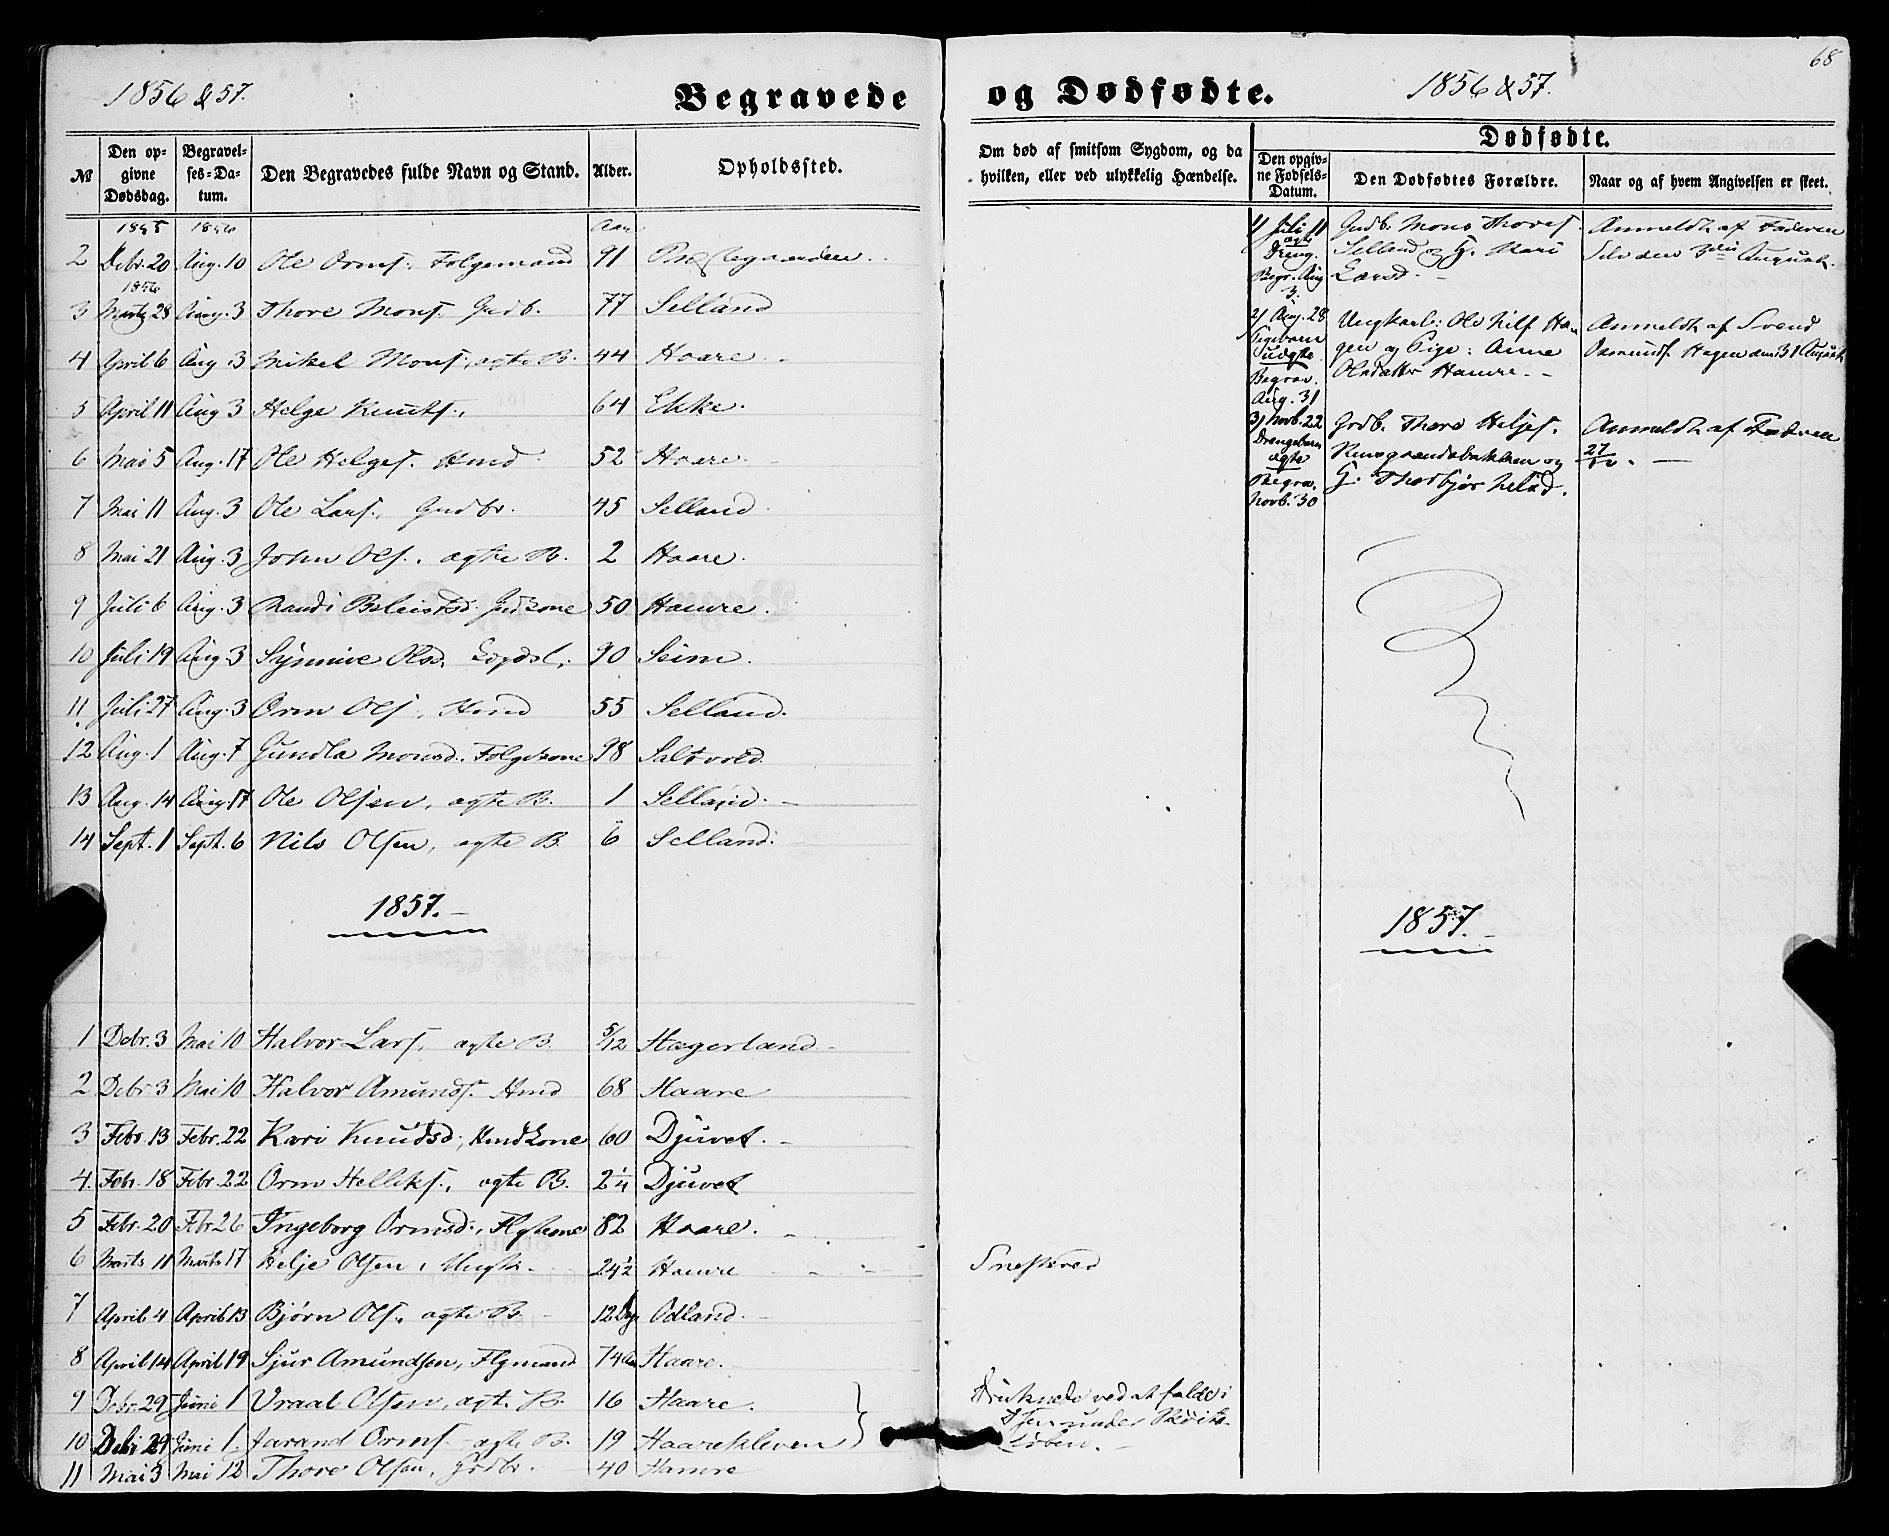 68
1856 & 57.
Begravede og Dødfødte.
1856 & 57.
№
Den opgivne Dødsdag.
Begravelses-Datum.
Den Begravedes fulde Navn og Stand.
Alder.
Opholdssted.
Om død af smitsom Sygdom, og da hvilken, eller ved ulykkelig Hændelse.
Dødfødte.
Den opgivne Fødsels-Datum.
Den Dødfødtes Forældre.
Naar og af hvem Angivelsen er skeet.
1855 1856 Aar
2 Debr. 20 Aug. 10 Ole Orms. Folgemand 91 Præstegaarden
1856
3 Marts 28 Aug. 3 Thore Mons. Grdb. 77 Selland
4 April 6 Aug 3 Mikel Mons. ægte B. 44 Haare
5 April 11 Aug 3 Helge Knuts. 64 Ekke.
6 Mai 5 Aug. 17 Ole Helges. Hmd 52 Haare.
7 Mai 11 Aug. 3 Ole Lars. Grdbr. 45 Selland
8 Mai 21 Aug. 3 John Ols. ægte B. 2 Haare.
9 Juli 6 Aug. 3 Randi 50 Hamre.
10 Juli 19 Aug. 3 Synnive Olsd. 90 Seim.
11 Juli 27 Aug. 3 Orm Ols. Hmd 55 Selland.
12 Aug. 1 Aug. 7 Gundla Monsd. Folgekone 98 Saltvold
13 Aug. 14 Aug 17 Ole Olsen, ægte B. 1 Selland.
14 Sept. 1 Sept. 6 Nils Olsen, ægte B. 6 Selland.
1857.
1 Debr. 3 Mai 10 Halvor Lars. ægte B. 5/12 Hægerland
2 Debr. 3 Mai 10 Halvor Amunds. Hmd 68 Haare
3 Febr. 13 Febr. 22 Kari Knudsd., Hmdkone 60 Djuvet.
4. Febr. 18 Febr. 22 Orm Helliks., ægte B. 2 1/4 Djuvet
5 Febr. 20 Febr 26 Ingeborg Ormsd., Flgkone 82 Haare.
6 Marts 11 Marts 17 Helje Olsen, Ungk. 24 1/2 Hamre Sneskred
7 April 4 April 13 Bjørn Ols. ægte B. 12 Dg. Odland.
8 April 14 April 19 Sjur Amundsen, Flgmand 74 Aar Haare.
9 Debr. 29 Juni 1 Vraal Olsen, ægt. B. 16 Haare. Druknede ved at falde i
10 Debr 29 Juni 1. Jarand Orms. ægte B. 19 Haarekleven Isen under
11 Mai 3 Mai 12 Thore Olsen, Grdbr. 40 Hamre
1) Juli 11 ægte Dreng. Begr. Aug 3.
Grdb. Mons Thores.
Selland og H. Kari
Anmeldt af Faderen
Selv den 3die August.
2) Aug. 28 Pigebarn uægte Begrav. Aug. 31
Ungkarl: Ole
gen og Pige: Anne
Olsdatter Hamre.
Anmeldt af Svend
Osmunds. Hagen den 31 August
3) Novb. 22 Drengebarn ægte Begrav. Novb. 30
Grdb. Thore Heljes.
og
G. Thorbjør
Anmeldt af Faderen
27/
1857.